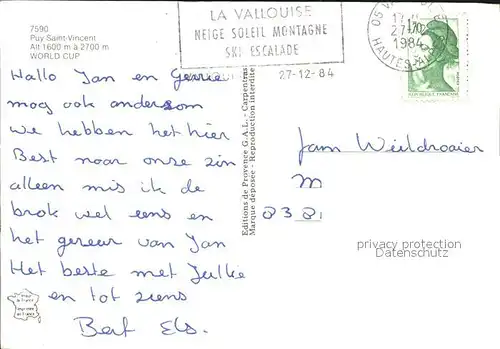 7590
Puy Saint-Vincent
Alt 1600 m à 2700 m
WORLD CUP
LA VALLOUISE
NEIGE SOLEIL MONTAGNE
SKI ESCALADE
05
17
27-12
1984
HAUTES-ALPES
1,70
REPUBLIQUE FRANCAISE
27-12-84
Hallo Jan en Gerrie
mog ook andersom
we hebben het hier
Best naar onze zin
alleen mis ik de
brok wel eens en
het gezeur van Jan
Het beste met Jullie
en tot ziens
Bert Els.
Editions de Provence G.A.L. - Carpentras
Marque déposée - Reproduction interdite
Jam
M
8381
privacy protection
Datenschutz